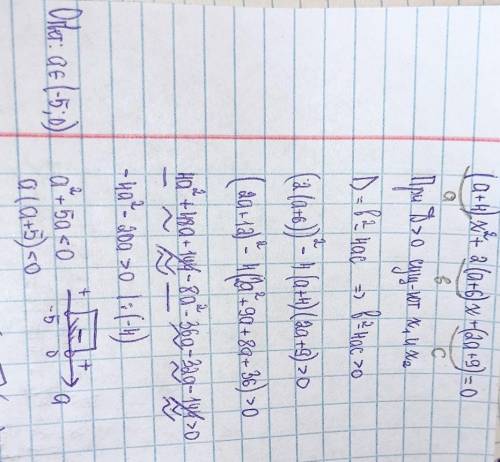 (a+4)x²+2(a+6)x+(2a+9)=0
a b c
При D>0 сущ-ют x₁ и x₂
D=b²-4ac => b²-4ac>0
(2(a+6))²-4(a+4)(2a+9)>0
(2a+12)²-4(2a²+9a+8a+36)>0
4a²+48a+144-8a²-36a-32a-144>0
-4a²-20a>0 |:(-4)
a²+5a<0
a(a+5)<0
+ - +
-5 0 a
Ответ: a∈(-5;0)